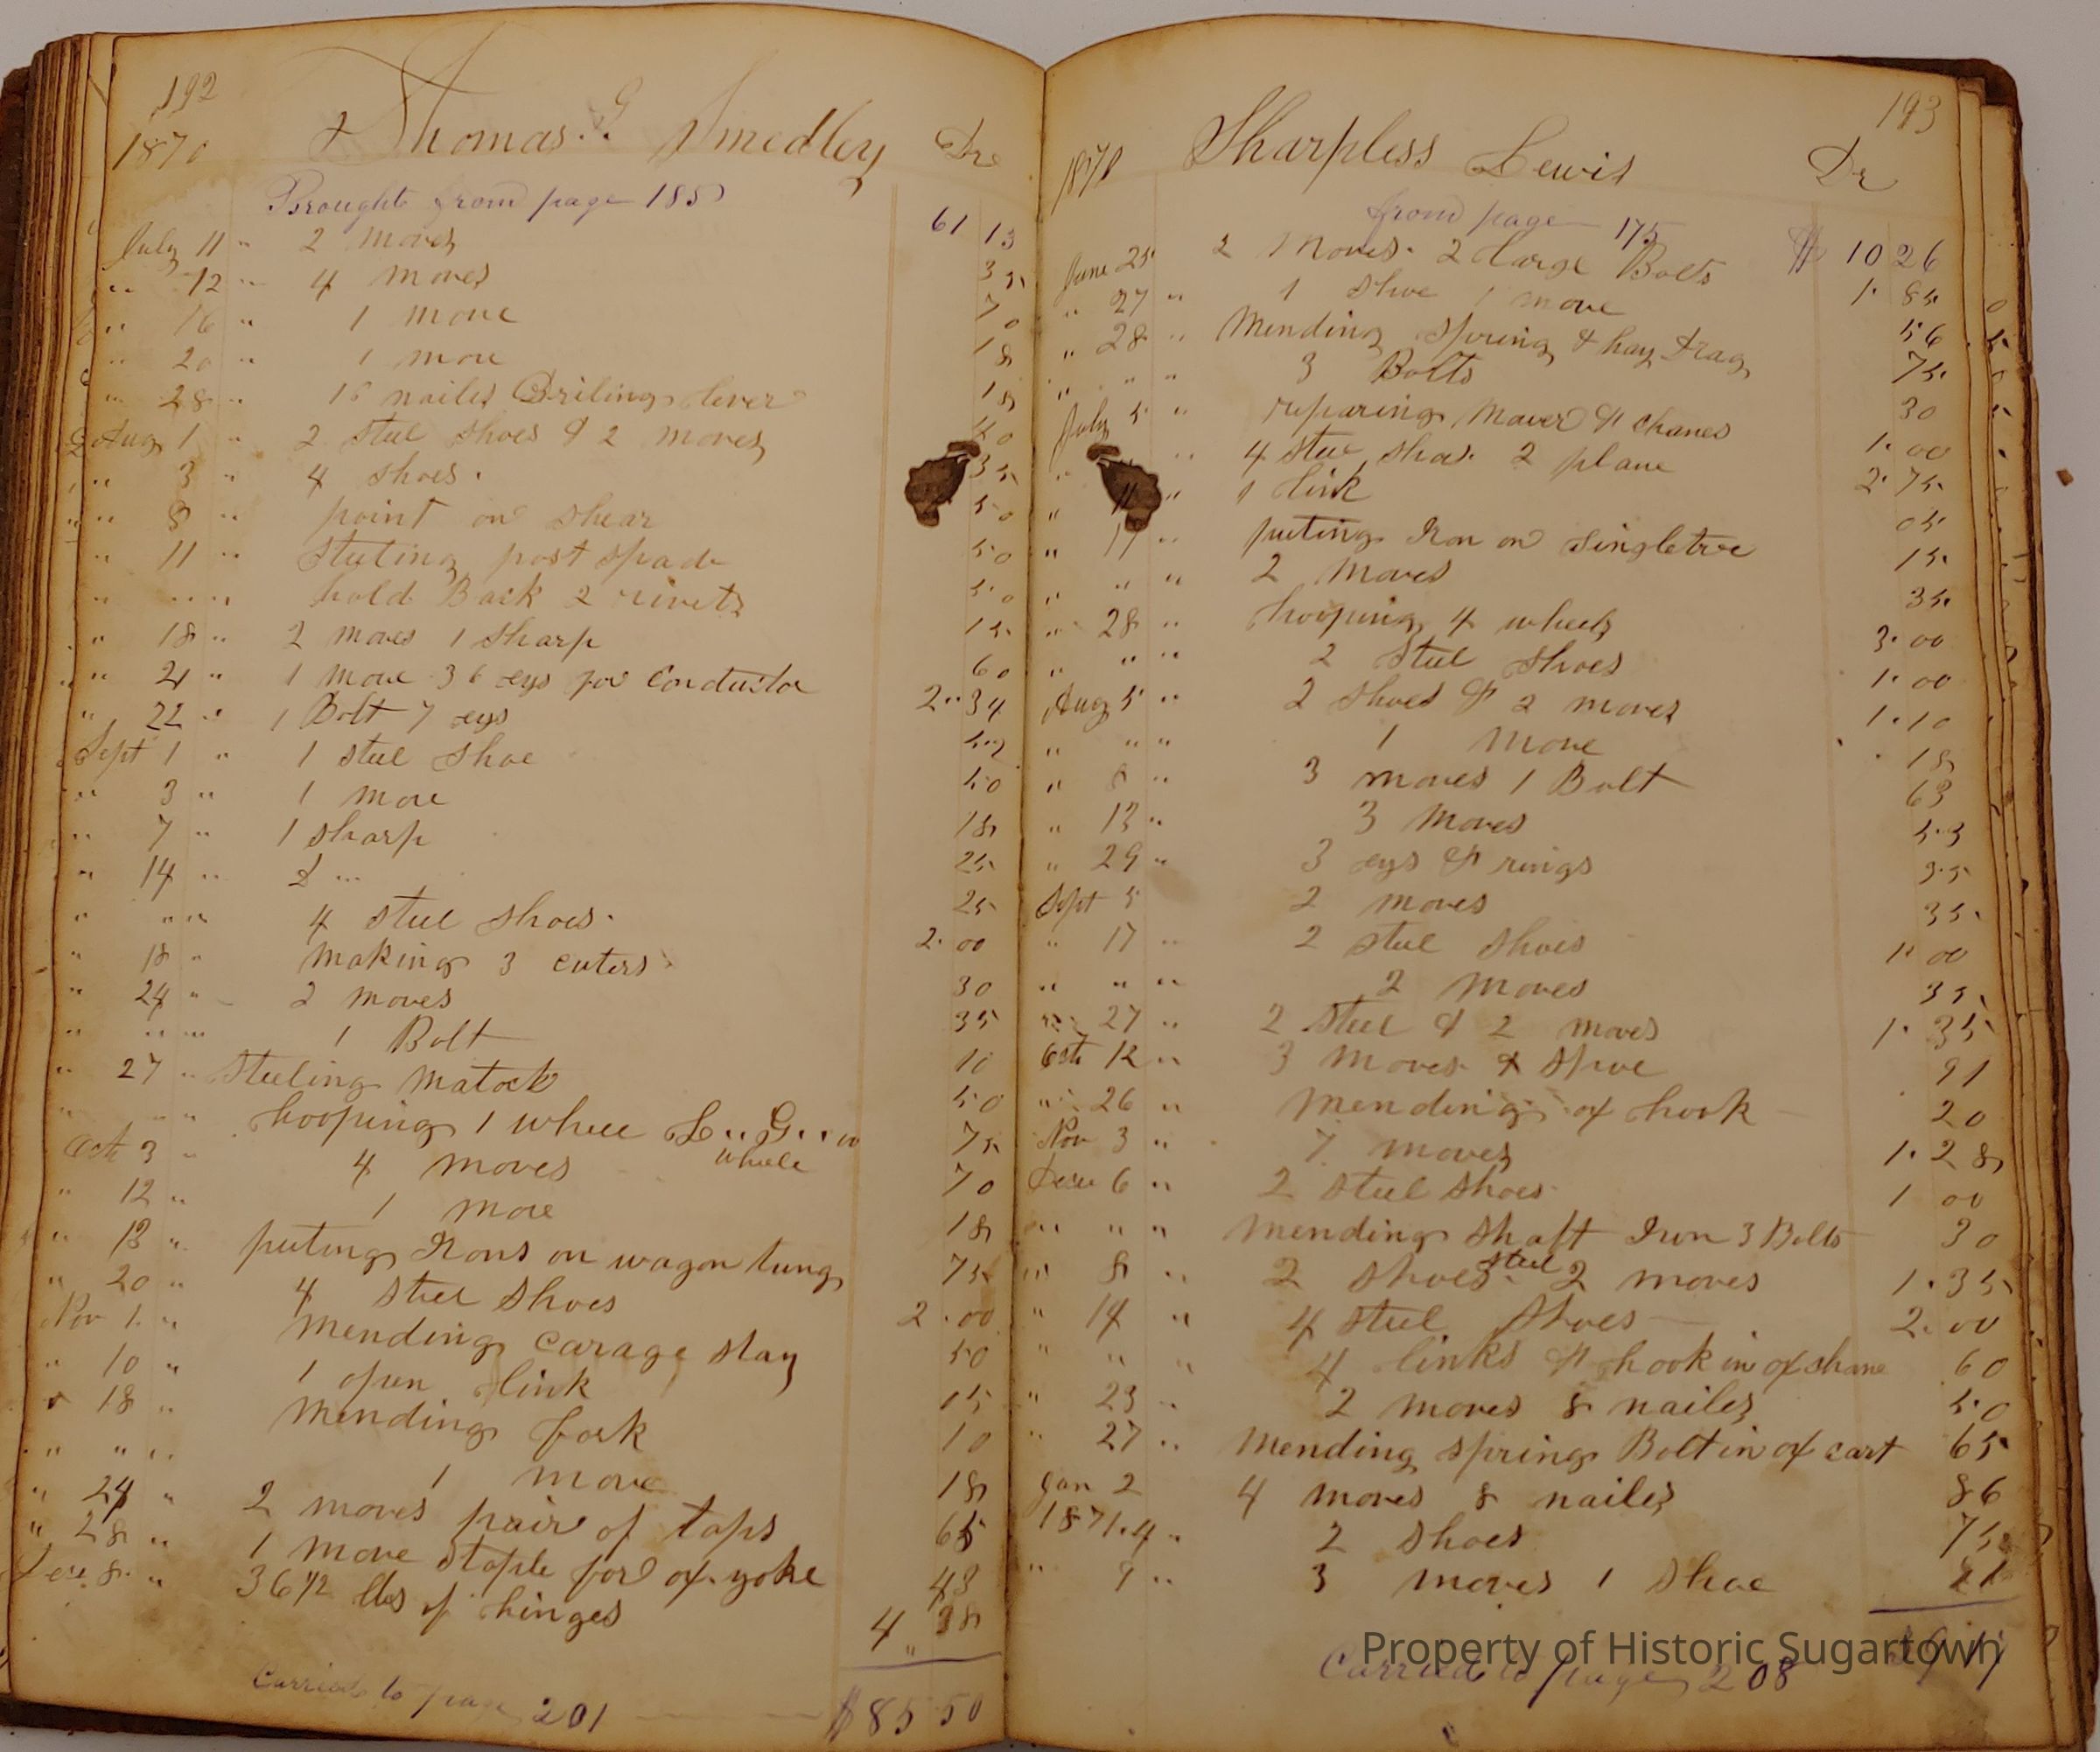 192
1870 Thomas. G Smedley Dr
Brought from page 185 61 13
July 11 " 2 moves 35
" 12 " 4 moves 70
" 16 " 1 move 18
" 20 " 1 move 18
" 28 " 16 nailes Driling lever 40
Aug 1 " 2 steel shoes & 2 moves 35
" 3 " 4 shoes. 50
" 8 " point on shear 50
" 11 " steeling post spade 50
" " " hold Back 2 rivets 15
" 18 " 2 moves 1 sharp 60
" 21 " 1 move 36 eys for Conductor 2 " 34
" 22 " 1 Bolt 7 eys
Sept 1 " 1 steel shoe 50
" 3 " 1 move 18
" 7 " 1 sharp 25
" 14 " 25
" " " 4 steel shoes. 2. 00
" 18 " making 3 cuters 30
" 24 " 2 moves 35
" " " 1 Bolt 10
" 27 " Steeling matock 50
" " " hooping 1 whee L.. G.. w 75
whele
Oct 3 " 4 moves 70
" 12 " 1 move 18
" 13 " puting Irons on wagon tung 75
" 20 " 4 steel shoes 2. 00
Nov 1. " mending carage stay 50
" 10 " 1 open link 15
" 18 " mending fork 10
" " " 1 move 18
" 24 " 2 moves pair of taps 65
" 28 " 1 move staple for ox yoke 43
Dece 8. " 36 1/2 lbs of hinges 4 " 38
Carried to page 201 $85 50
193
1870 Sharpless Lewis Dr
from page 175 $ 10 26
June 25 2 moves. 2 large Bolts 1. 85
" 27 " 1 shoe 1 move 56
" 28 " Mending spring & hay drag 75
" " " 3 Bolts 30
July 5 " reparing mover & chanes 1. 00
" " 4 steel shos. 2 plane 2. 75
" 11 " 1 link 05
" 17 " puting Iron on singletree 15
" " " 2 moves 35
" 28 " hooping 4 wheels 3. 00
" " " 2 steel shoes 1. 00
Aug 5 " 2 shoes & 2 moves 1. 10
" " " 1 move 18
" 8 " 3 moves 1 Bolt 63
" 13 " 3 moves 53
" 29 " 3 eys & rings 35
Sept 5 2 moves 35
" 17 " 2 steel shoes 1. 00
" " " 2 moves 35
" 27 " 2 steel & 2 moves 1. 35
Oct 12 " 3 moves & shoe 91
" 26 " mending ox hook 20
Nov 3 " 7 moves 1. 28
Dece 6 " 2 steel shoes 1 00
" " " mending shaft Iron 3 Bolts 30
" 8 " 2 shoes steel 2 moves 1. 35
" 14 " 4 steel shoes 2. 00
" " " 4 links & hook in ox chane 60
" 23 " 2 moves 8 nailes 50
" 27 " mending spring Bolt in ox cart 65
Jan 2 4 moves 8 nailes 86
1871. 4 " 2 shoes 75
" 9 " 3 moves 1 shoe
Carried to page 208
Property of Historic Sugartown